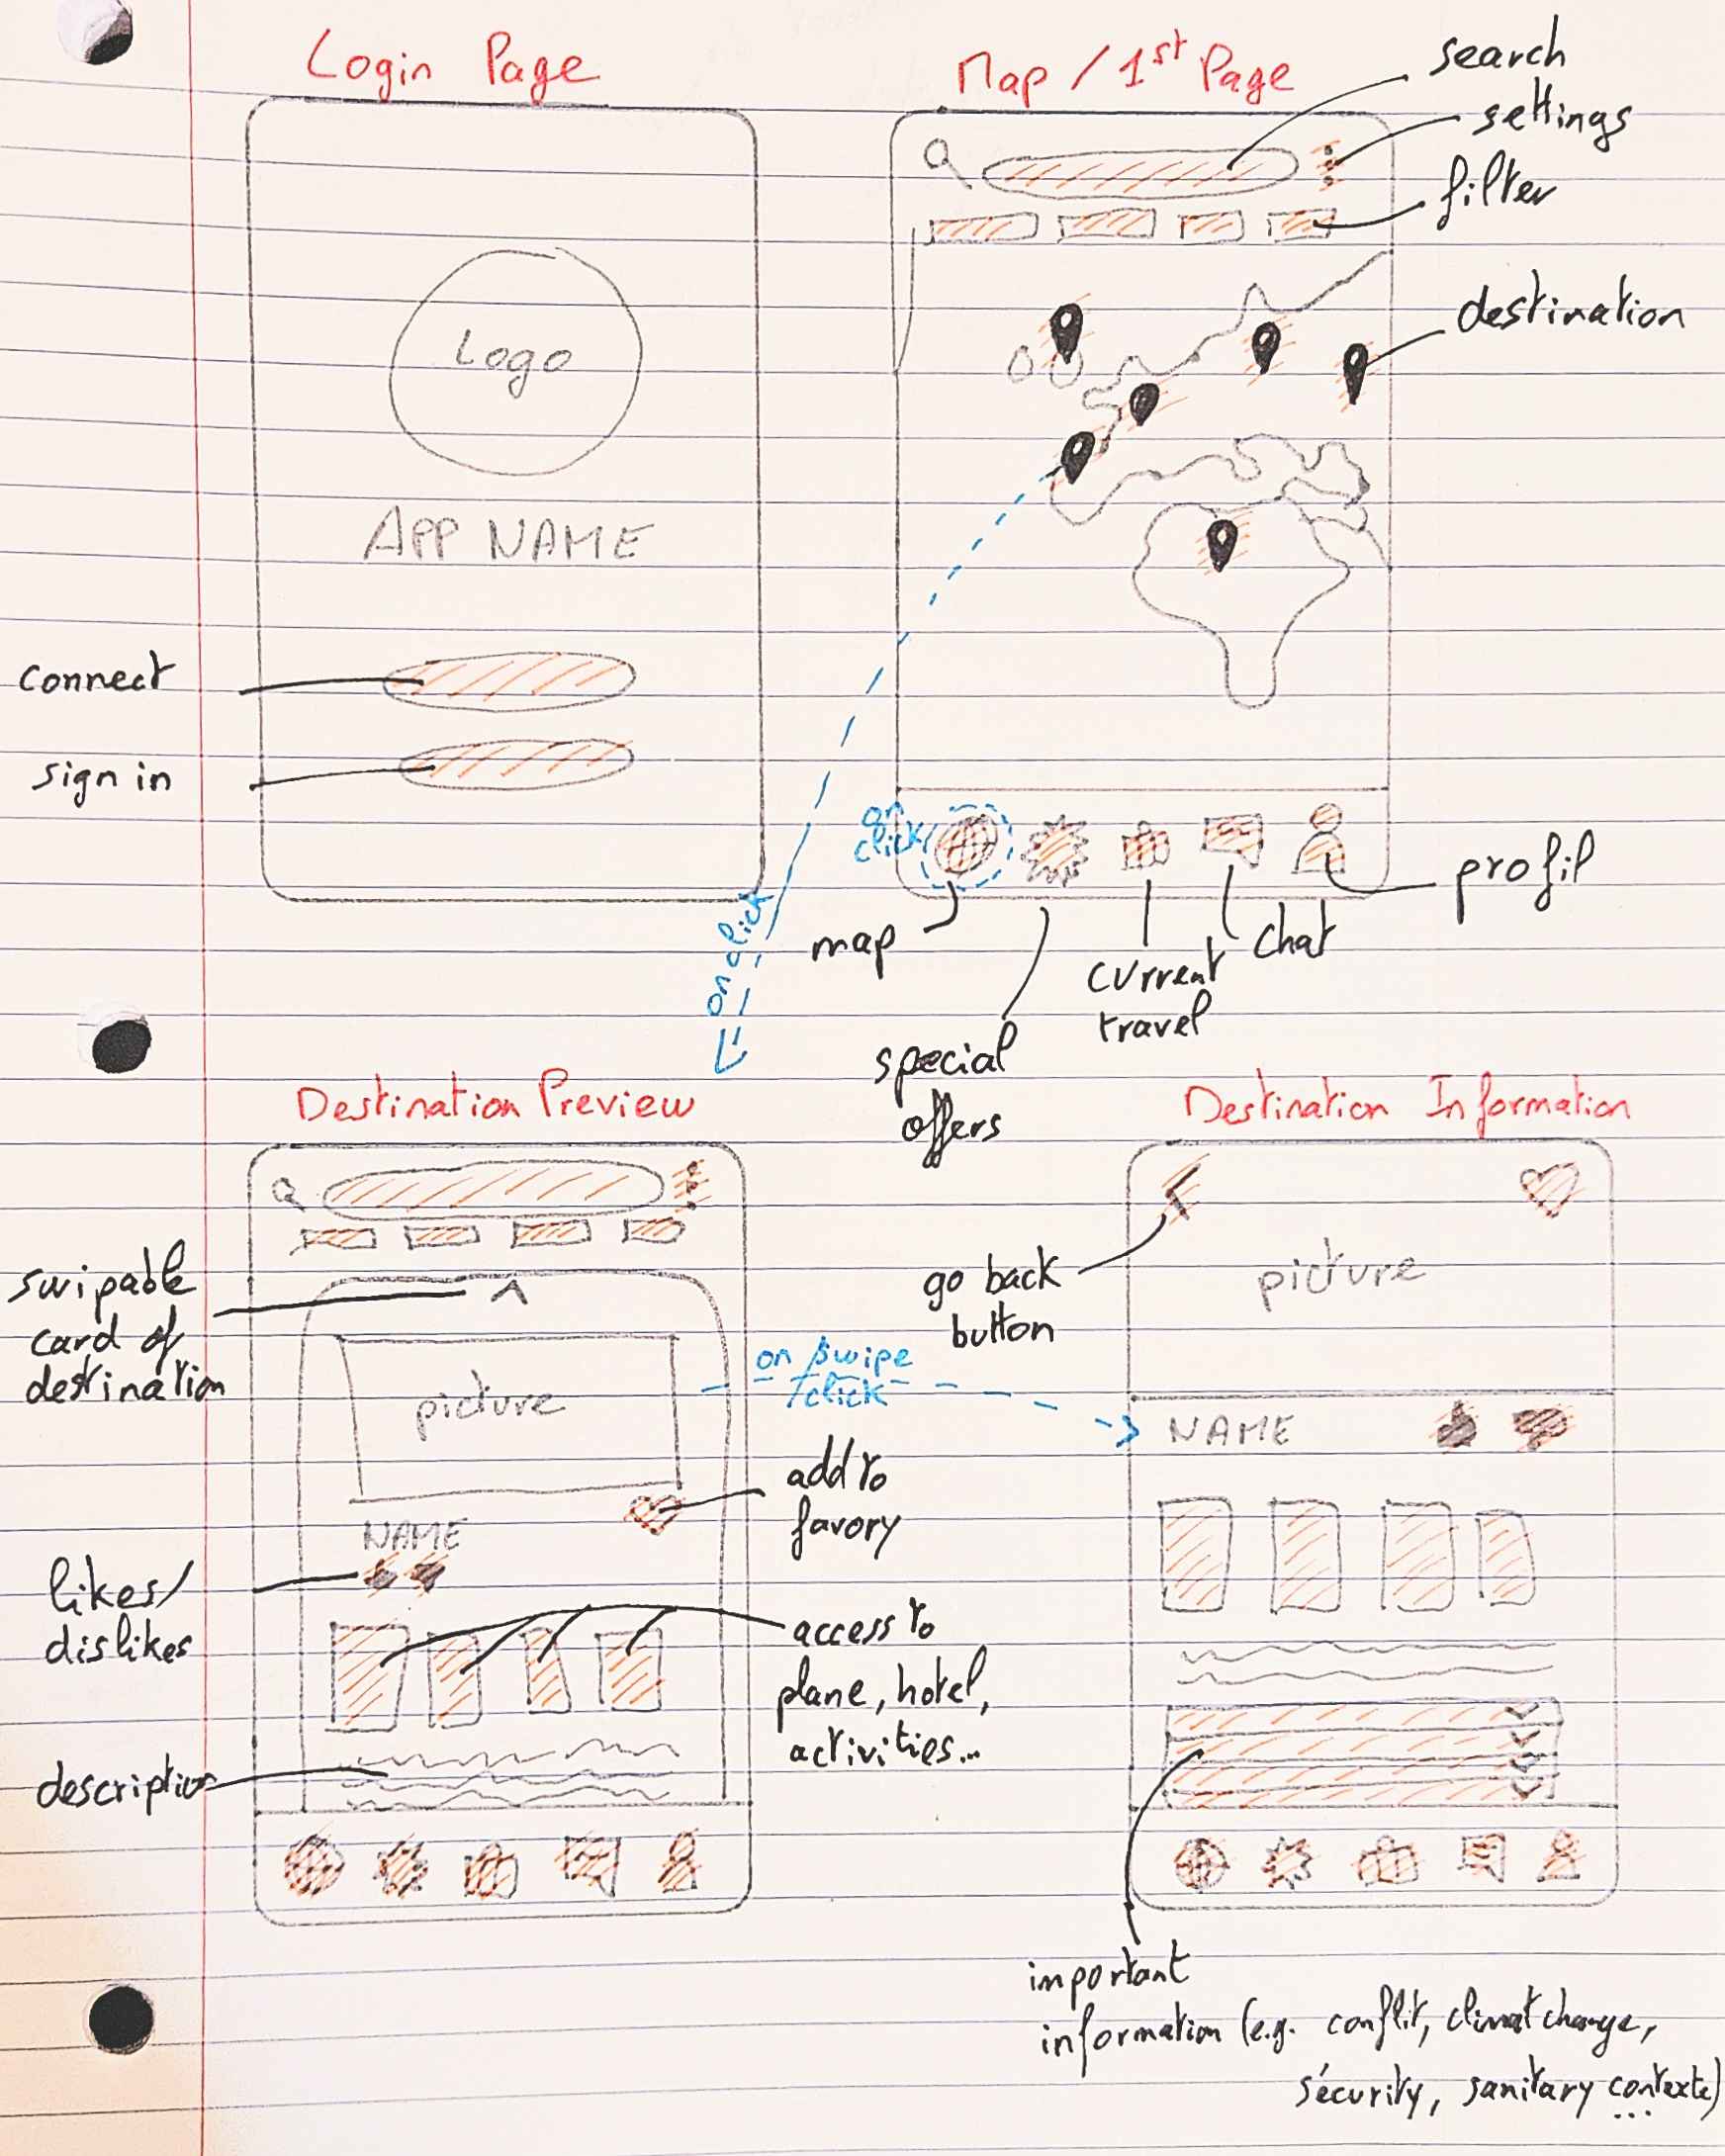 Login Page
Logo
APP NAME
connect
sign in
Map / 1st Page
search
settings
filter
destination
on
click
map
special
offers
current
travel
chat
profil
on click
Destination Preview
swipable
card of
destination
picture
NAME
add to
favory
likes/
dislikes
access to
plane, hotel,
activities...
description
on swipe
/click
Destination Information
go back
button
picture
NAME
important
information (e.g. conflit, climat change,
sécurity, sanitary contexte)
...